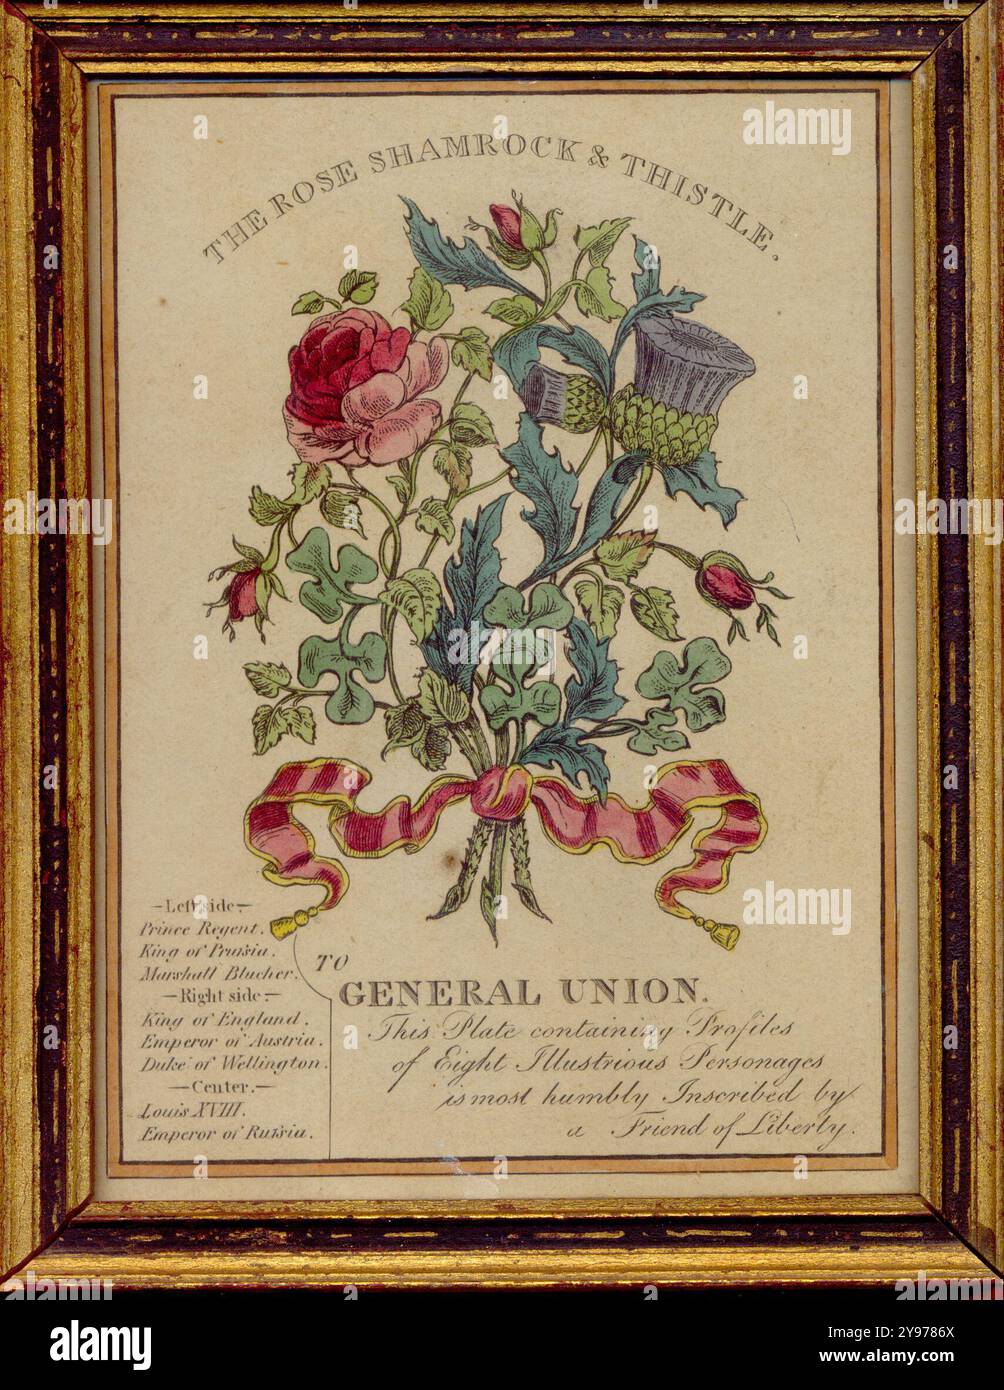 THE ROSE SHAMROCK & THISTLE.
—Left side—
Prince Regent.
King of Prussia.
Marshall Blucher.
—Right side—
King of England.
Emperor of Austria.
Duke of Wellington.
—Center.—
Louis XVIII.
Emperor of Russia.
TO
GENERAL UNION.
This Plate containing Profiles
of Eight Illustrious Personages
is most humbly Inscribed by
a Friend of Liberty.
alamy
alamy
Image ID: Y9786X
www.alamy.com